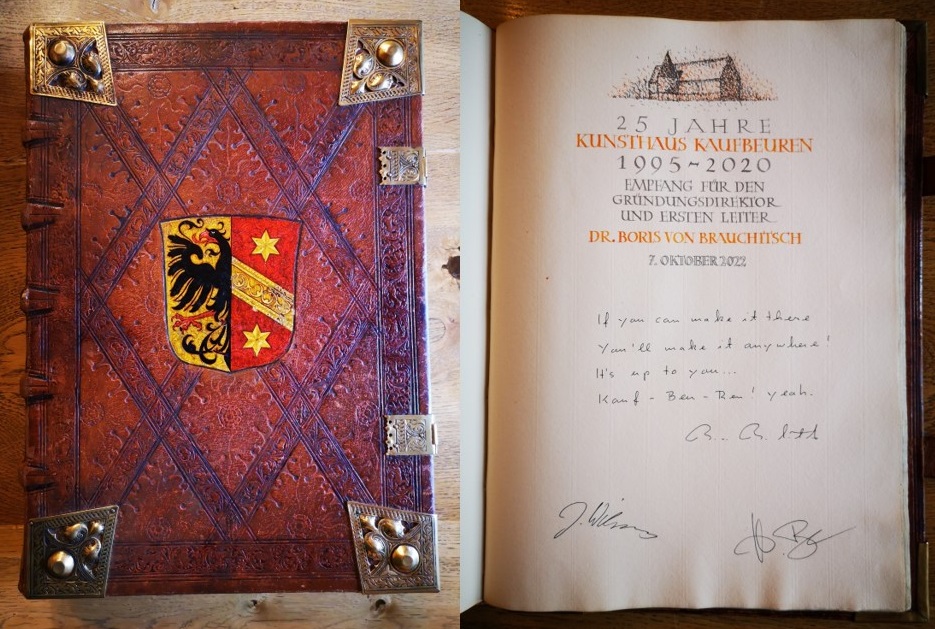 25 JAHRE
KUNSTHAUS KAUFBEUREN
1995~2020
EMPFANG FÜR DEN
GRÜNDUNGSDIREKTOR
UND ERSTEN LEITER
DR. BORIS VON BRAUCHITSCH
7. OKTOBER 2022
If you can make it there
You'll make it anywhere!
It's up to you...
Kauf - Beu - Ren! yeah.